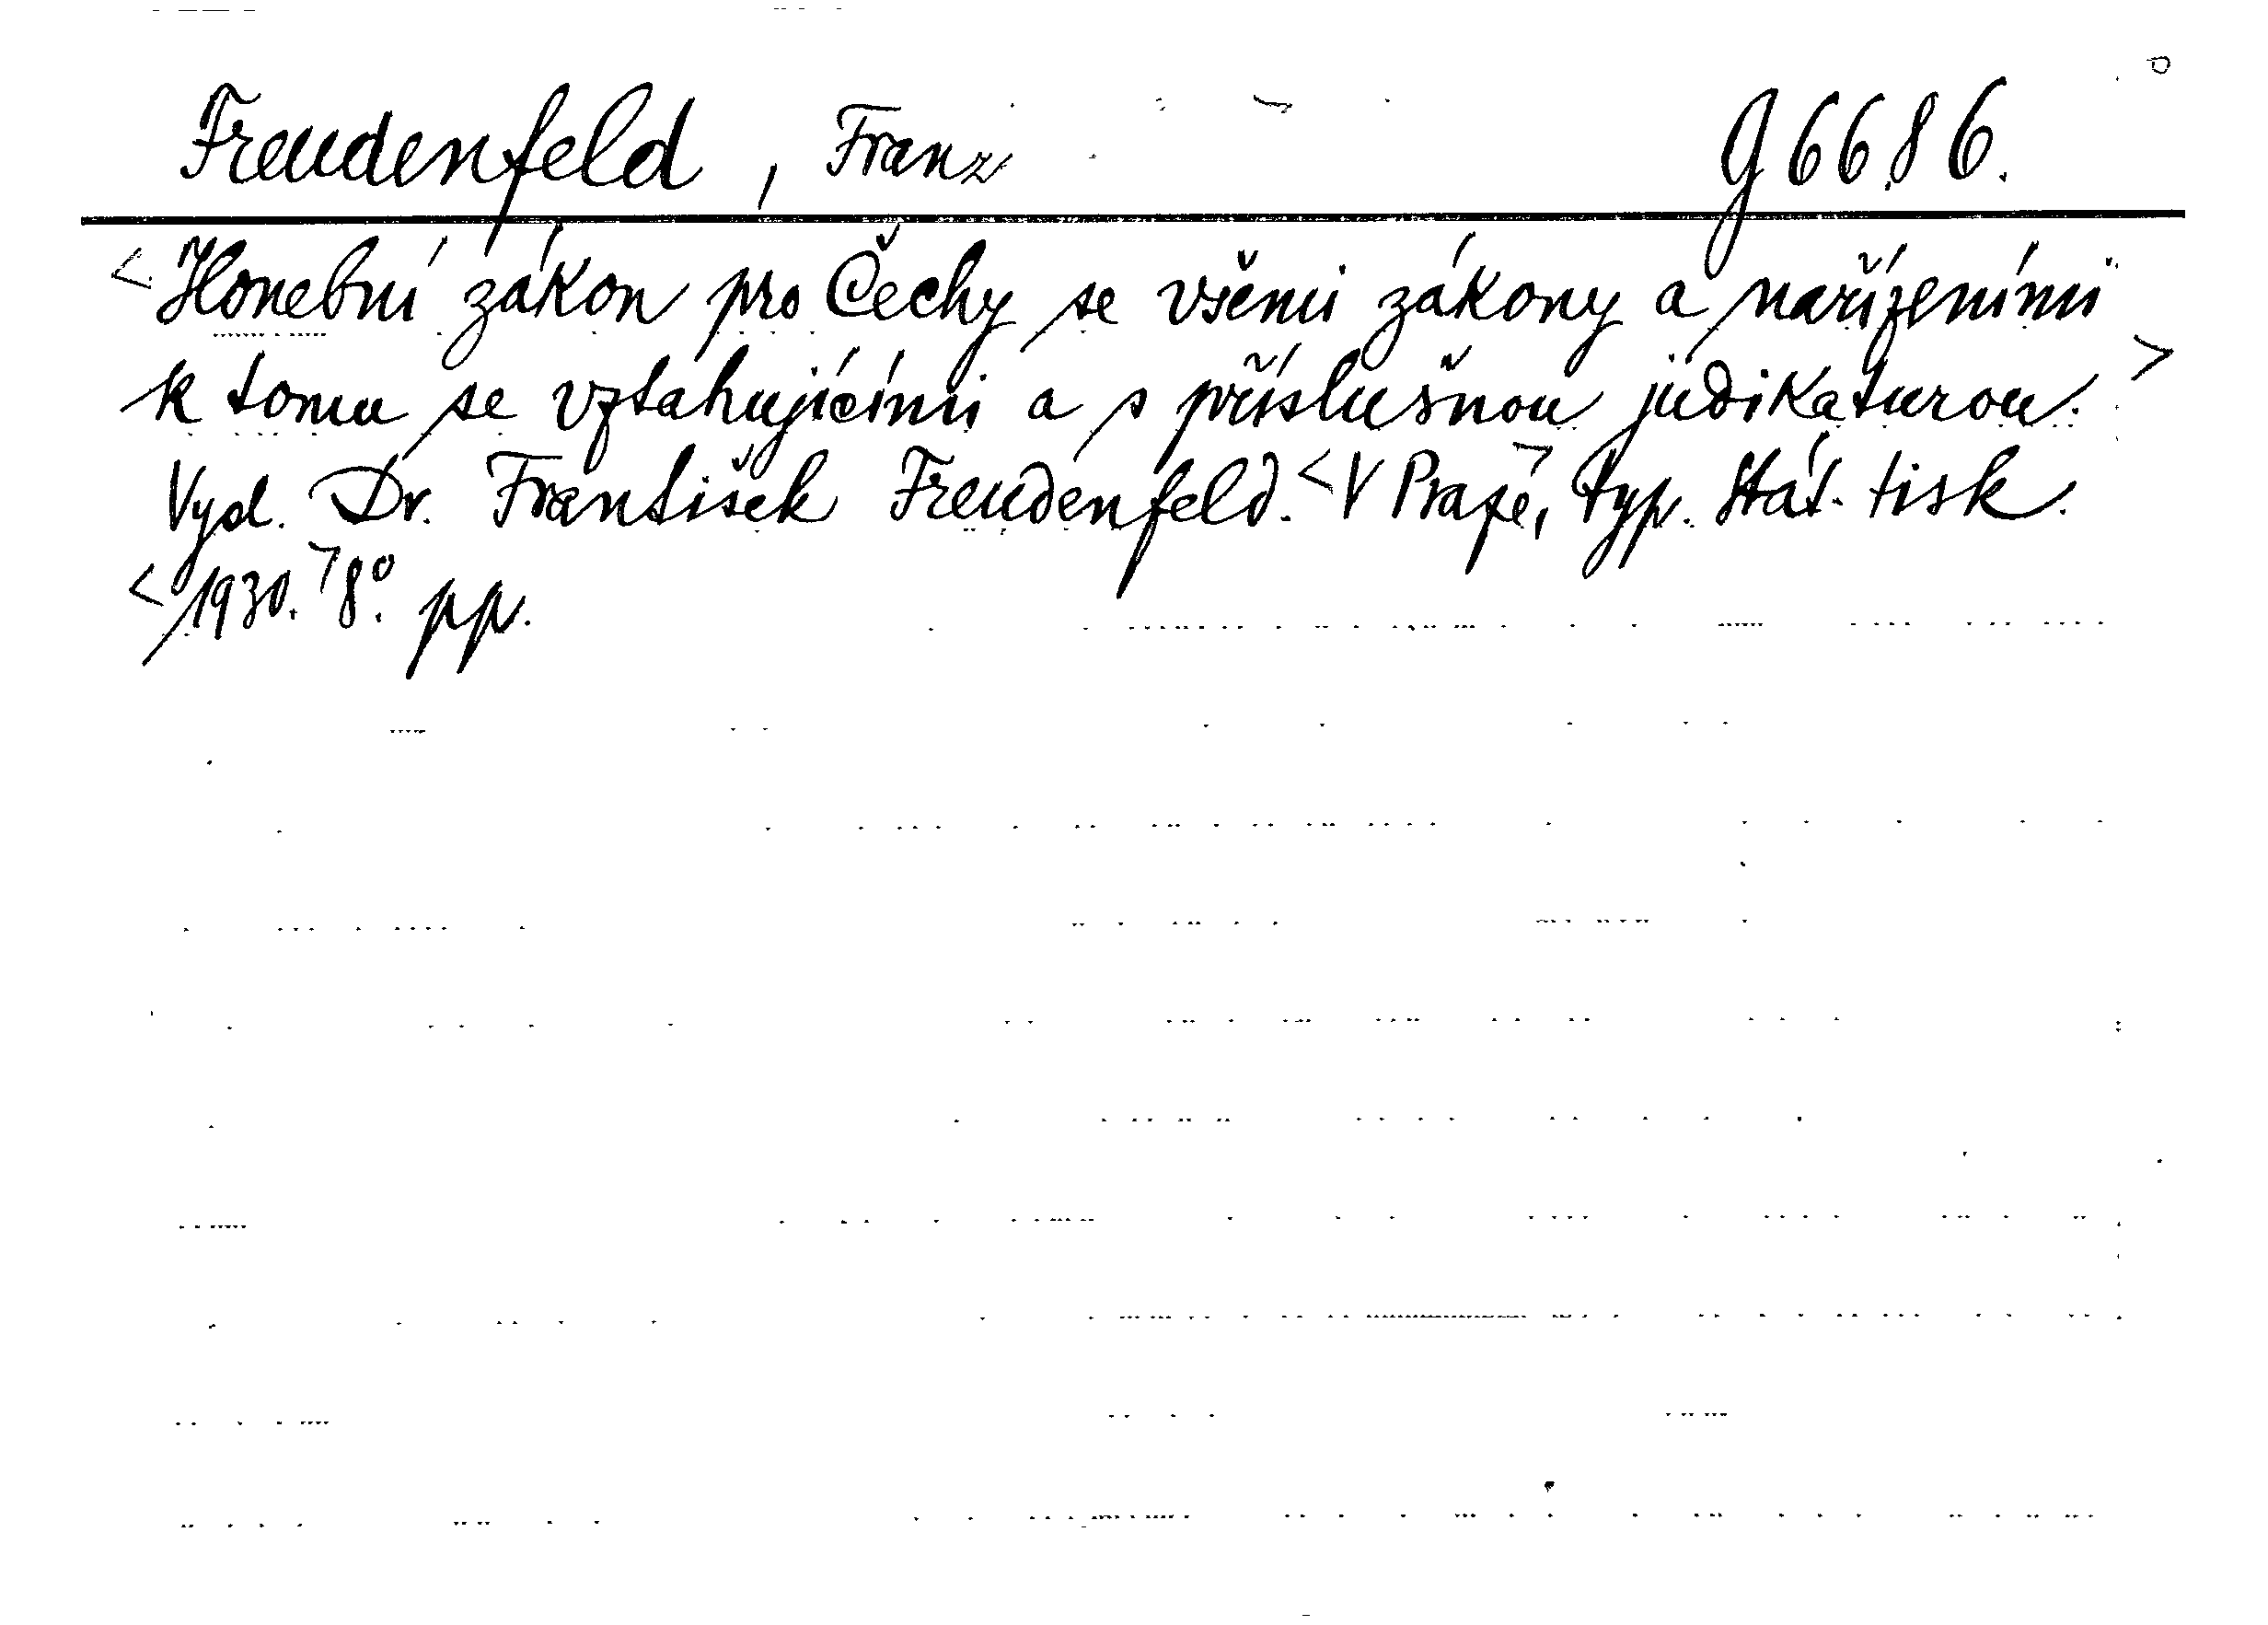 Freudenfeld, Franz g 6686.
<Honební zákon pro Čechy se všemi zákony a nařízeními
k tomu se vztahujícími a s příslušnou judikaturou.>
Vyd. Dr. František Freudenfeld. <V Praze,> typ. Stát. tisk.
<1930.> 8°. pp.